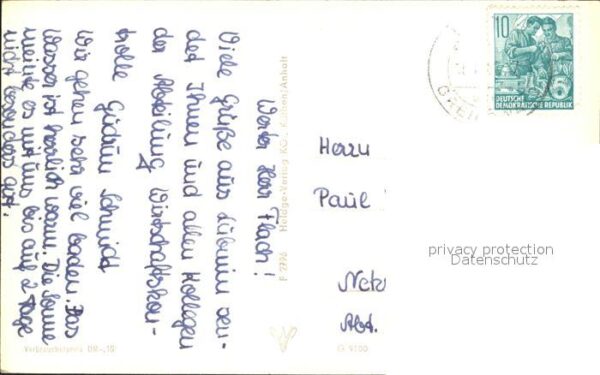 Werter Herr Flach!
Viele Grüße aus Lubmin sen-
det Ihnen und allen Kollegen
der Abteilung Wirtschaftskon-
trolle Gudrun Schmidt
Wir gehen sehr viel baden. Das
Wasser ist herrlich warm. Die Sonne
meinte es mit uns bis auf 2 Tage
nicht besonders gut.
Verbraucherpreis DM -,10
Heldge-Verlag KG., Köthen/Anhalt
F 2796
G 9100
10
6
DEUTSCHE
DEMOKRATISCHE REPUBLIK
Herrn
Paul
Abt.
privacy protection
Datenschutz